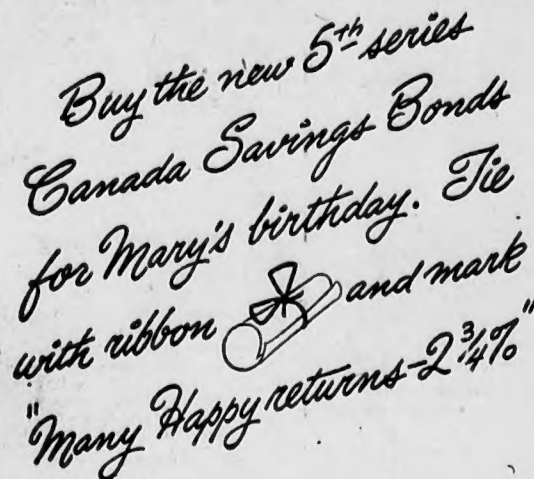 Buy the new 5th series
Canada Savings Bonds
for Mary's birthday. Tie
with ribbon and mark
"Many Happy returns-2 3/4%"